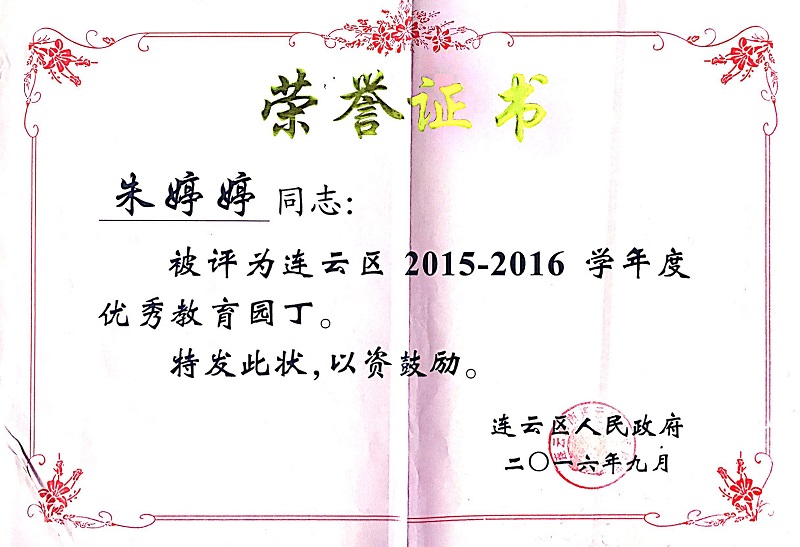 荣誉证书
朱婷婷 同志：
被评为连云区 2015-2016 学年度
优秀教育园丁。
特发此状，以资鼓励。
连云区人民政府
二〇一六年九月